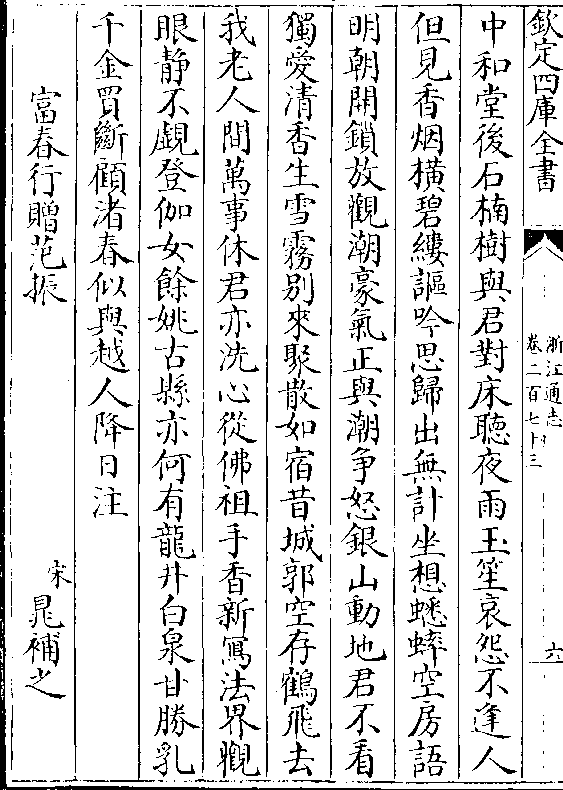 欽定四庫全書
浙江通志
卷二百七十三
六
中和堂後石楠樹與君對床聽夜雨玉笙哀怨不逢人
但見香烟橫碧縷謳吟思歸出無計坐想蟋蟀空房語
明朝開鎖放觀潮豪氣正與潮争怒銀山動地君不看
獨愛清香生雪霧别來聚散如宿昔城郭空存鶴飛去
我老人間萬事休君亦洗心從佛祖手香新冩法界觀
眼静不覷登伽女餘姚古縣亦何有龍井白泉甘勝乳
千金買斷顧渚春似與越人降日注
富春行贈范振
宋
晁補之